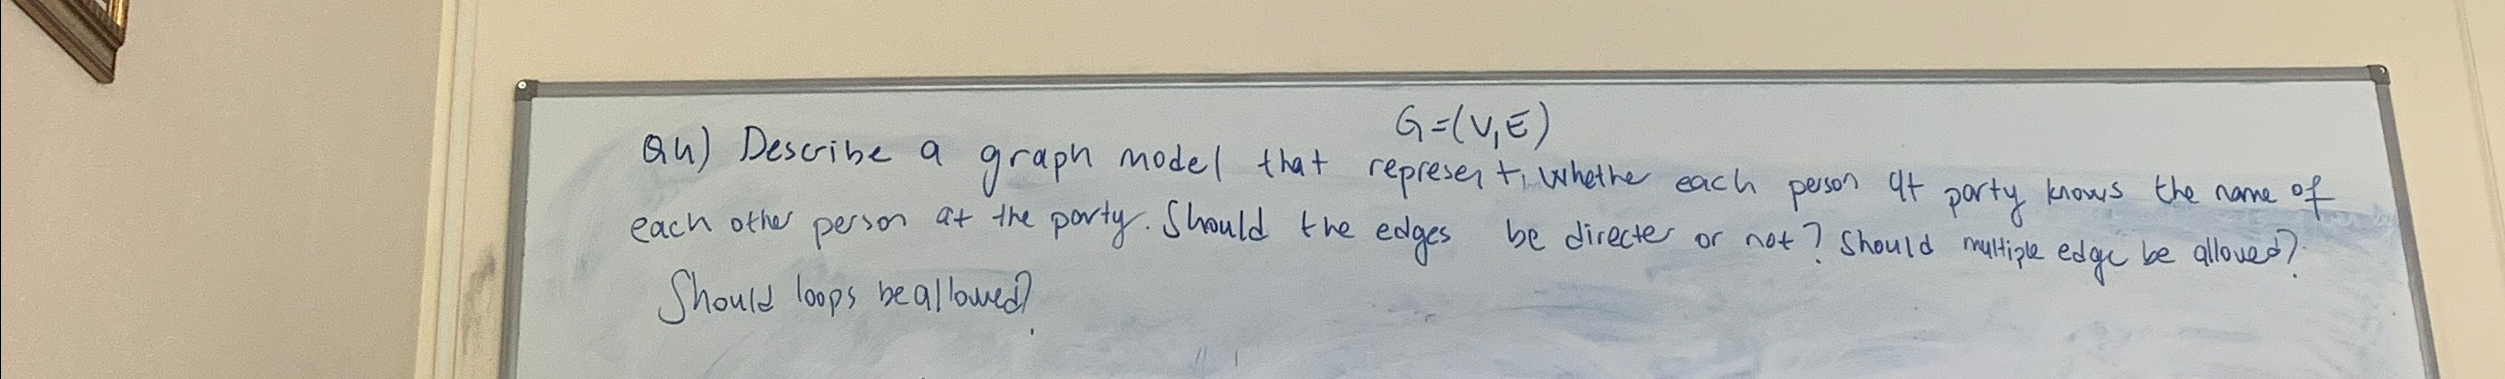 G=(V,E)
Q4) Describe a graph model that represent, whethe each person at party knows the name of
each other person at the party. Should the edges be directed or not? Should multiple edge be allowed?
Should loops be allowed?